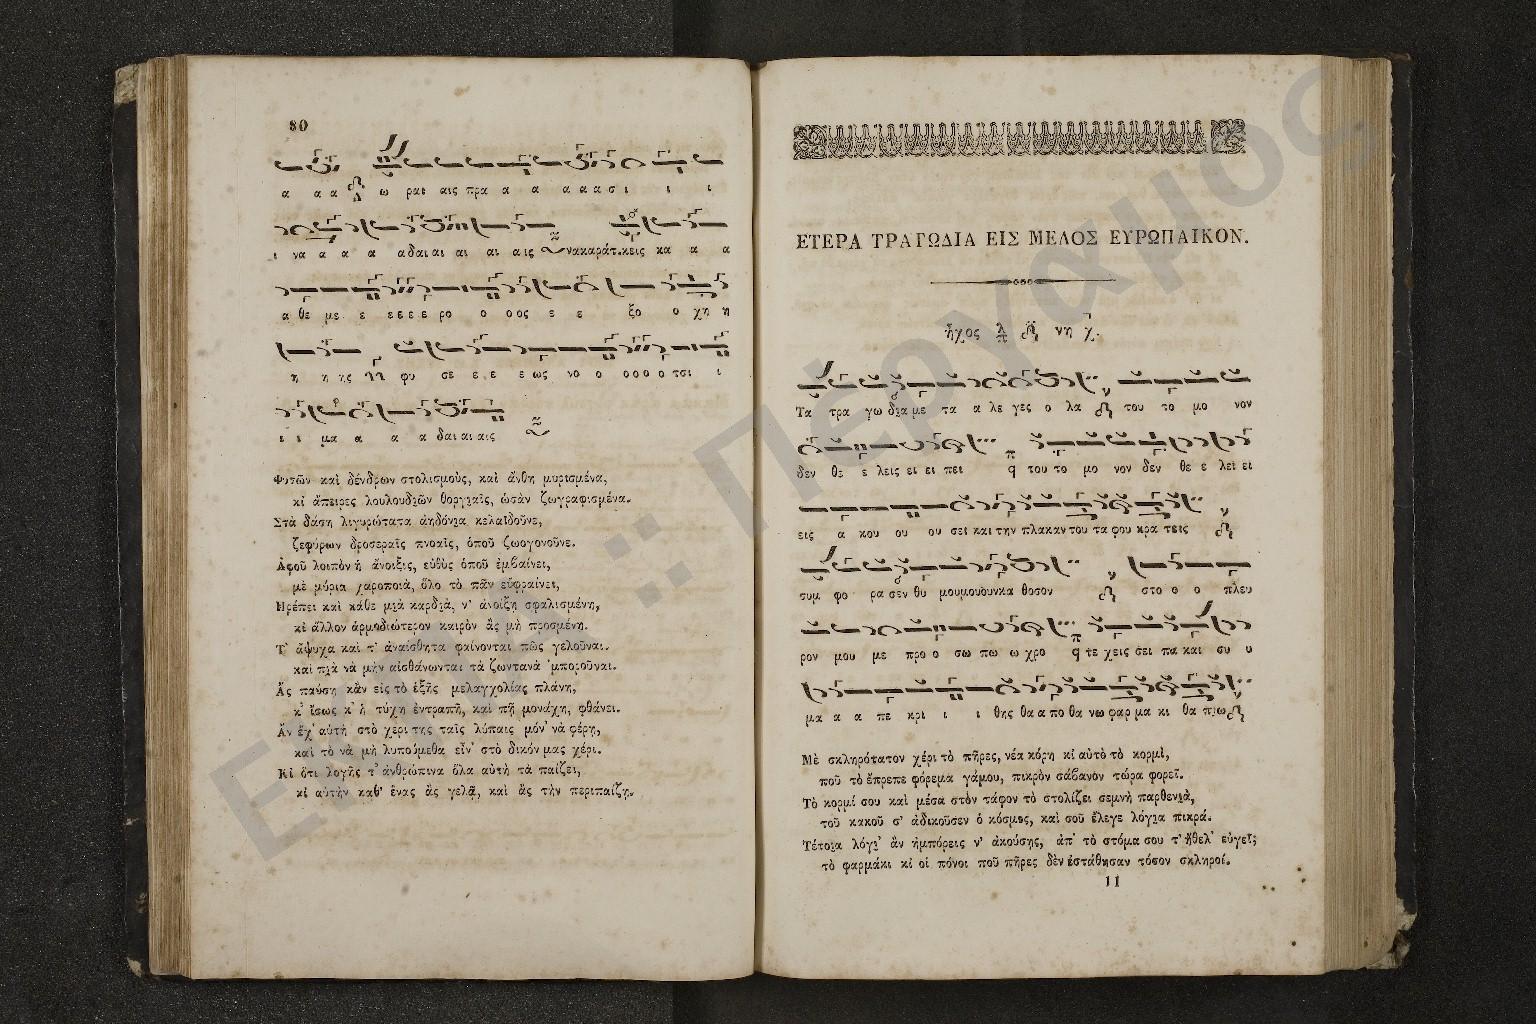 80
α α α ω ραι αις πρα α α α α α σι ι ι
ι να α α α αδαι αι αι αι α ις νακαράτ.κεις κα α α
α θε με ε ε ε ε ε ρο ο ο ος ε ε ξο ο χη η
η η ης φυ σε ε ε ε ως νο ο ο ο ο ο τσι ι
ι ι μα α α α δαι αι αις
Φυτῶν καὶ δένδρων στολισμοὺς, καὶ ἄνθη μυρισμένα,
κἰ ἄπειρες λουλουδιῶν θοργιαὶς, ὡσὰν ζωγραφισμένα.
Στὰ δάση λιγυρώτατα ἀηδόνια κελαϊδοῦνε,
ζεφύρων δροσεραῖς πνοαῖς, ὁποῦ ζωογονοῦνε.
Ἀφοῦ λοιπὸν ἡ ἄνοιξις, εὐθὺς ὁποῦ ἐμβαίνει,
μὲ μύρια χαροποιὰ, ὅλο τὸ πᾶν εὐφραίνει,
Πρέπει καὶ κάθε μιὰ καρδιὰ, ν' ἀνοίξῃ σφαλισμένη,
κἰ ἄλλον ἁρμοδιώτερον καιρὸν ἂς μὴ προσμένῃ.
Τ' ἄψυχα καὶ τ' ἀναίσθητα φαίνονται πῶς γελοῦναι.
καὶ πιὰ νὰ μὴν αἰσθάνωνται τὰ ζωντανὰ 'μποροῦναι.
Ἂς παύσῃ κᾂν εἰς τὸ ἑξῆς μελαγχολίας πλάνη,
κ' ἴσως κ' ἡ τύχη ἐντραπῇ, καὶ πῇ μονάχη, φθάνει.
Ἂν ἔχ' αὐτὴ στὸ χέρι της ταῖς λύπαις μόν' νὰ φέρῃ,
καὶ τὸ νὰ μὴ λυπούμεθα εἶν' στὸ δικόν μας χέρι.
Κἰ ὅτι λογῆς τ' ἀνθρώπινα ὅλα αὐτὴ τὰ παίζει,
κἰ αὐτὴν καθ' ἕνας ἂς γελᾷ, καὶ ἂς τὴν περιπαίζῃ.
ΕΤΕΡΑ ΤΡΑΓΩΔΙΑ ΕΙΣ ΜΕΛΟΣ ΕΥΡΩΠΑΙΚΟΝ.
ἦχος νη
Τα τρα γω δια με τα α λε γες ο λα του το μο νον
δεν θε ε λεις ει ει πει του το μο νον δεν θε ε λει ει
εις α κου ου ου σει και την πλακαν του τα φου κρα τεις
συμ φο ρα σεν θυ μουμουουνκα θοσον στο ο ο πλευ
ρον μου με προ ο σω πω ω χρο τε χεις σει πα και συ υ
μα α α πε κρι ι ι θης θα α πο θα νω φαρ μα κι θα πιω
Μὲ σκληρότατον χέρι τὸ πῆρες, νέα κόρη κἰ αὐτὸ τὸ κορμὶ,
ποῦ τὸ ἔπρεπε φόρεμα γάμου, πικρὸν σάβανον τώρα φορεῖ.
Τὸ κορμί σου καὶ μέσα στὸν τάφον τὸ στολίζει σεμνὴ παρθενιὰ,
τοῦ κακοῦ σ' ἀδικοῦσεν ὁ κόσμος, καὶ σοῦ ἔλεγε λόγια πικρά.
Τέτοια λόγι' ἂν ἠμπόρεις ν' ἀκούσῃς, ἀπ' τὸ στόμα σου τ' ἤθελ' εὐγεῖ;
τὸ φαρμάκι κἰ οἱ πόνοι ποῦ πῆρες δὲν ἐστάθησαν τόσον σκληροί.
11
Πέργαμος